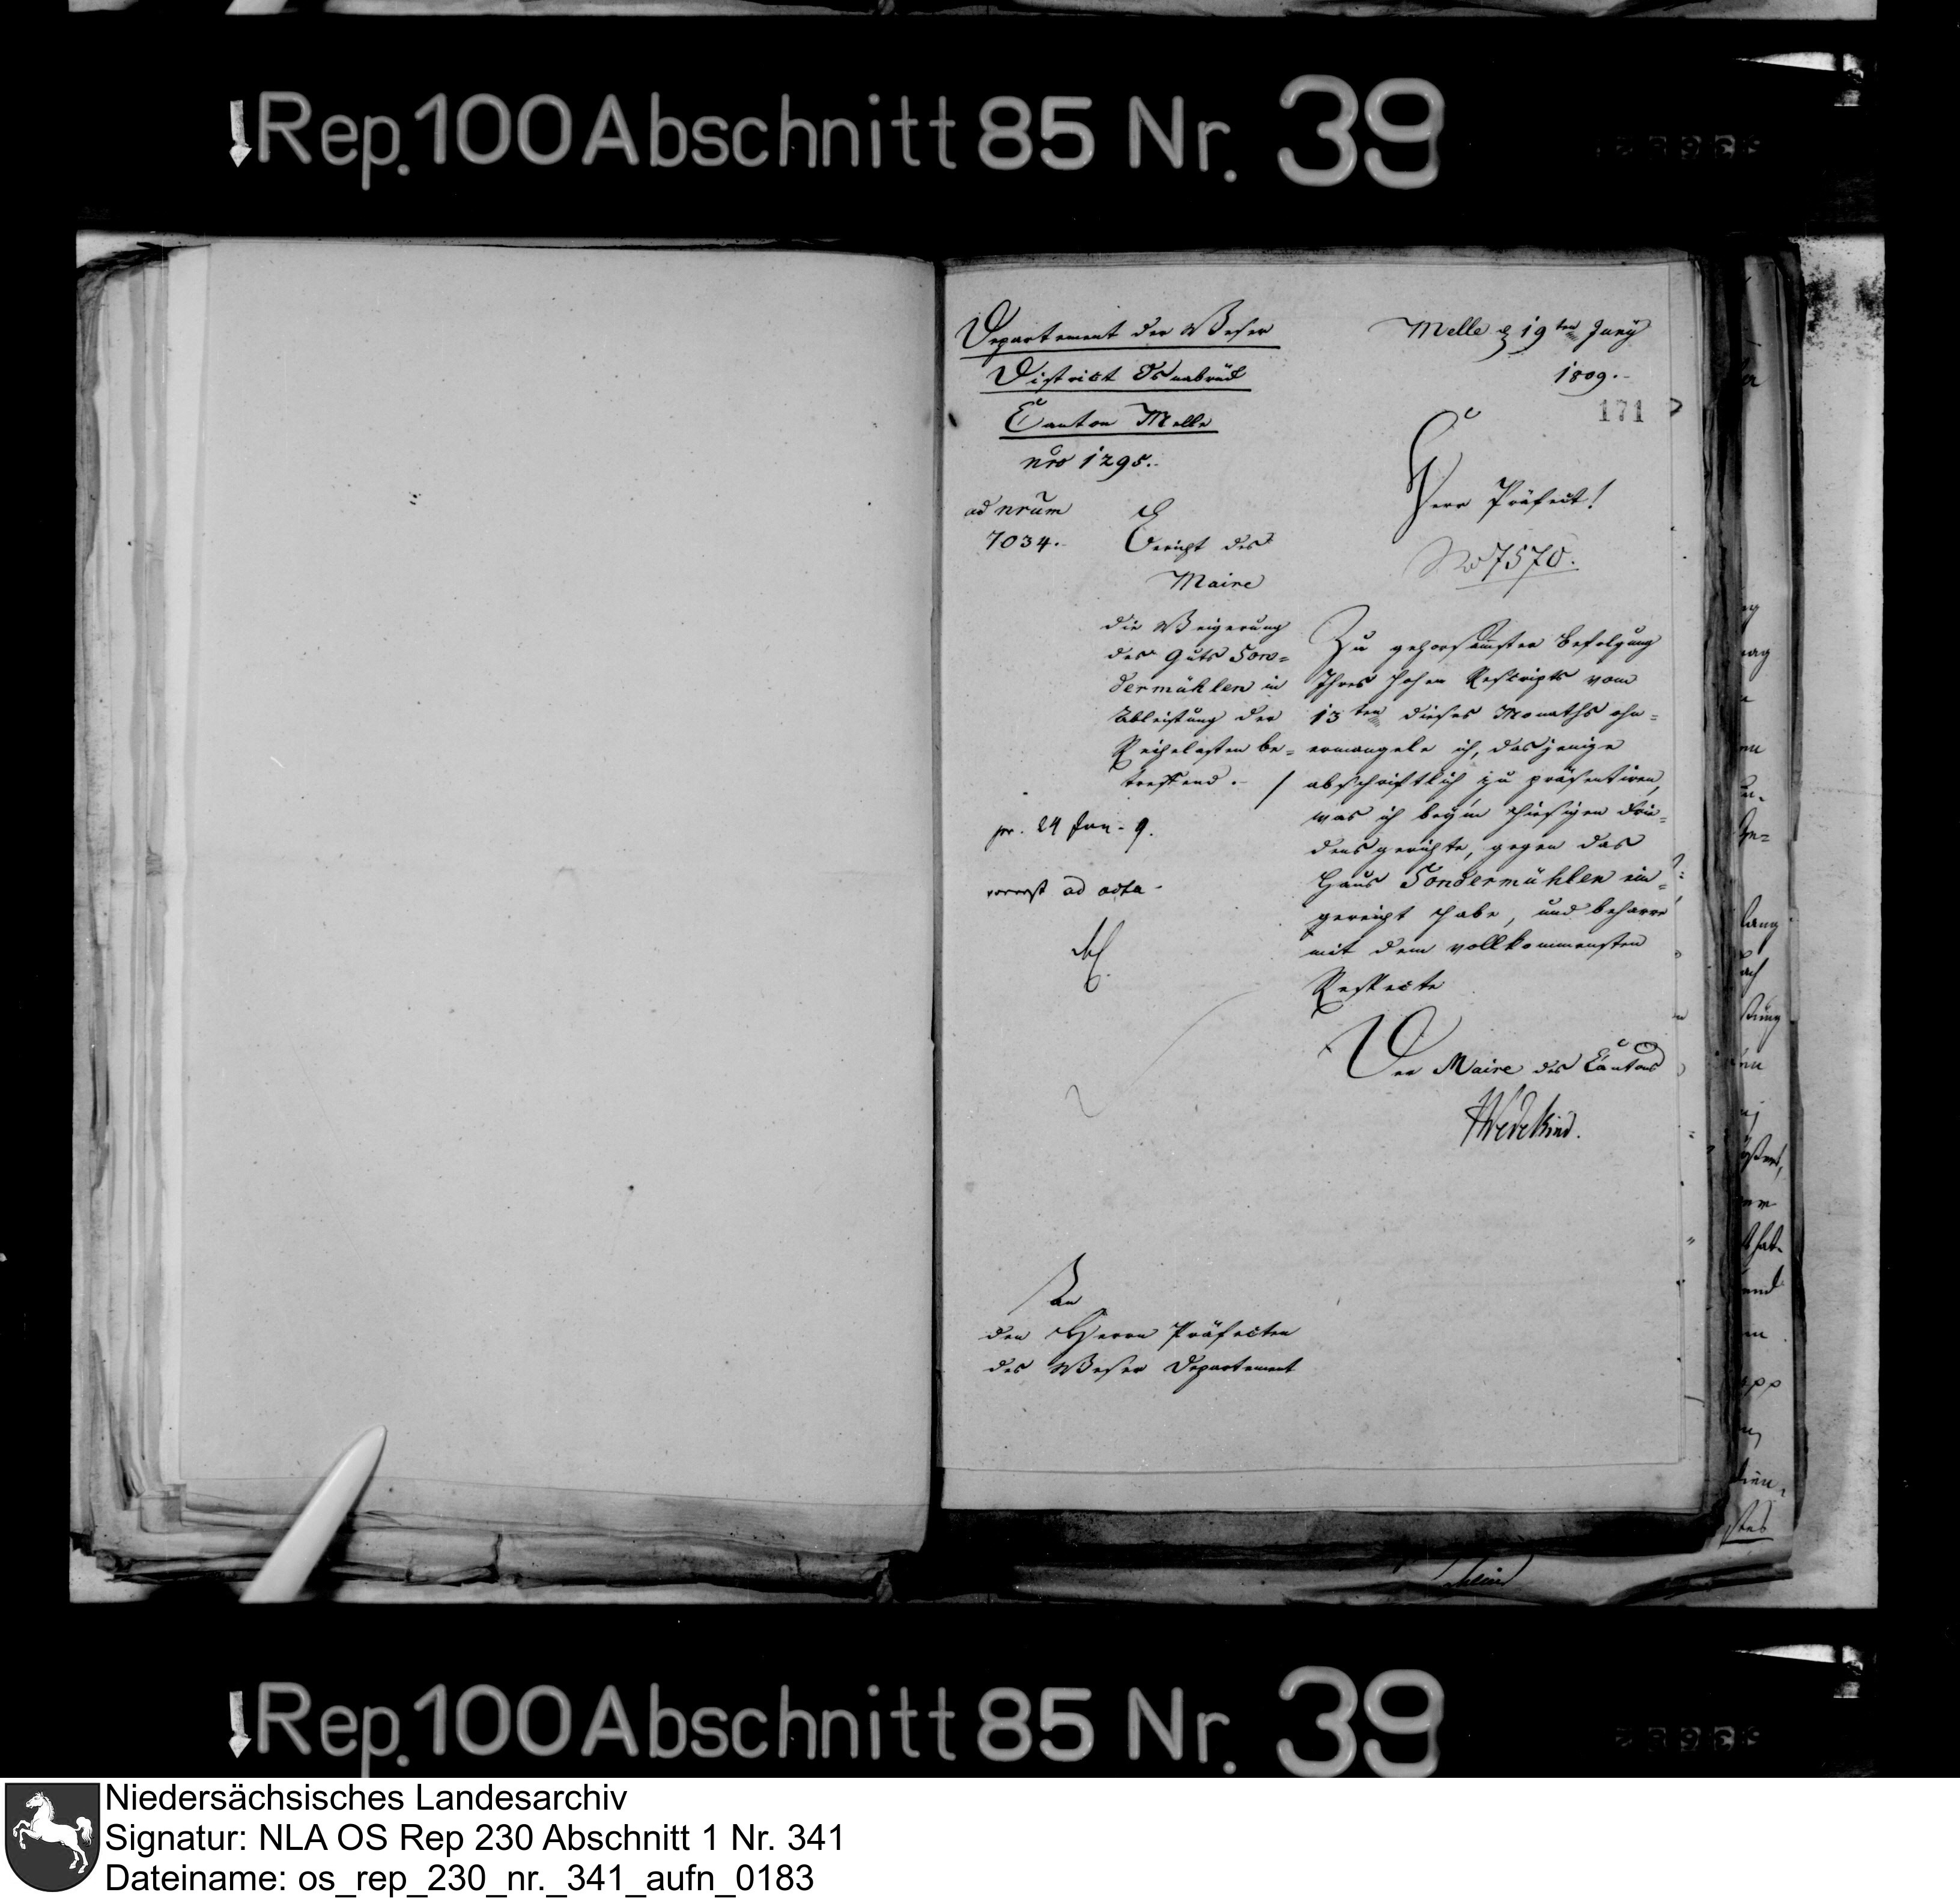 Rep. 100 Abschnitt 85 Nr. 39
Departement der Weser
District Osnabrück
Canton Melle
nro 1295.
ad nrum
7034.
Bericht des
Maire
die Weigerung
des Guts Son=
dermühlen in
Ableistung der
Reihelasten be=
treffend.
pr. 24 Jun. 9.
vorerst ad acta.
Melle d 19ten Juny
1809.
171
Herr Präfect!
No 7570.
Zu gehorsamster Befolgung
Ihres hohen Rescripts vom
13ten dieses Monaths ohn=
ermangele ich, dasjenige
abschriftlich zu präsentiren,
was ich beym hiesigen Frie=
densgerichte, gegen das
Haus Sondermühlen ein=
gereicht habe, und beharre
mit dem vollkommensten
Respecte
Der Maire des Cantons
Wedekind.
An
den Herrn Präfecten
des Weser Departement
Rep. 100 Abschnitt 85 Nr. 39
Niedersächsisches Landesarchiv
Signatur: NLA OS Rep 230 Abschnitt 1 Nr. 341
Dateiname: os_rep_230_nr._341_aufn_0183